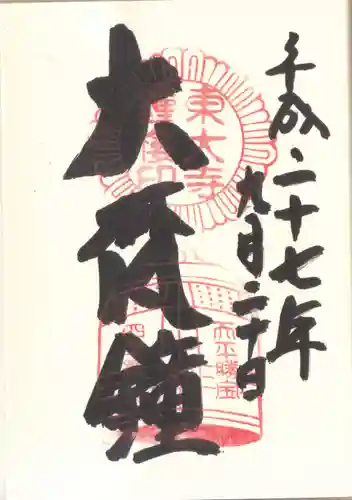 平成二十七年
九月二十日
大 鐘
東大寺
鐘楼印
天平勝宝
四